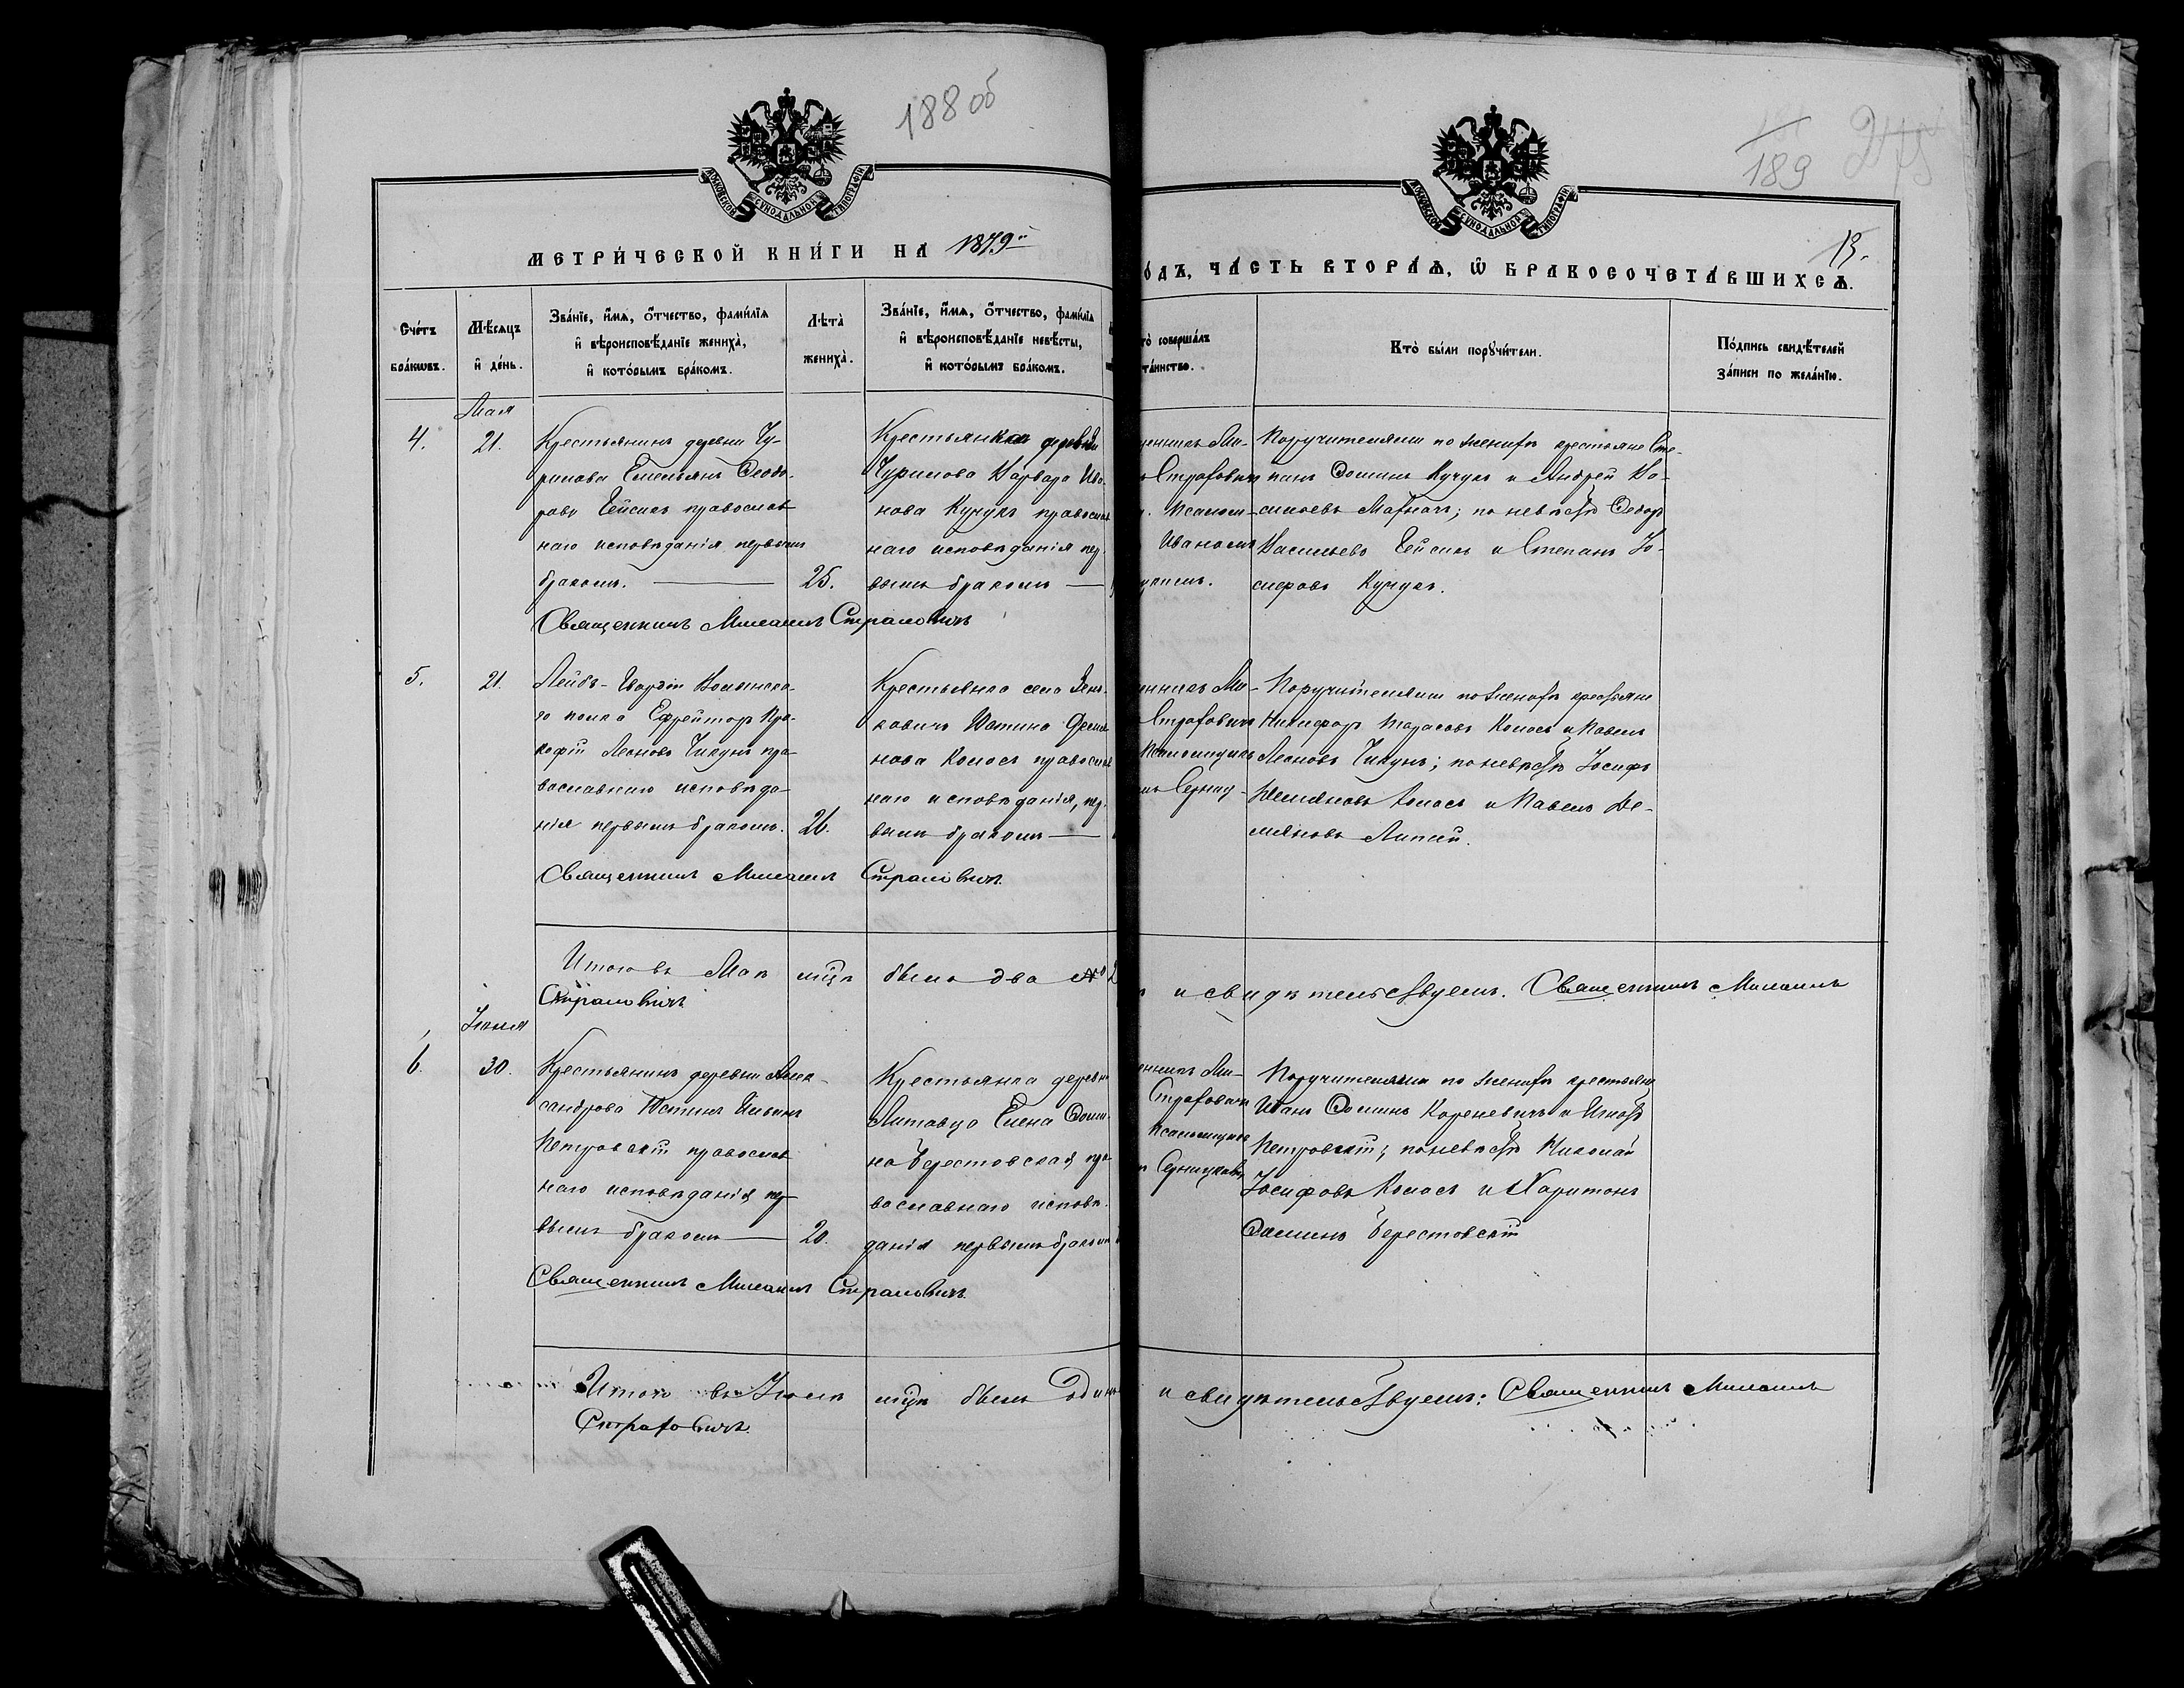 188 об
189
МОСКОВСКОЙ СУНОДАЛЬНОЙ ТИПОГРАФІИ
МОСКОВСКОЙ СУНОДАЛЬНОЙ ТИПОГРАФІИ
МЕТРИ́ЧЕСКОЙ КНИ́ГИ НА 1879й
О́ДЪ, ЧА́СТЬ ВТОРА́Ѧ, Ѽ БРАКОСОЧЕТА́ВШИХСѦ.
Сче́тъ бра́кѡвъ.
Мѣ́сѧцъ и҆ де́нь.
Зва́нїе, и҆́мѧ, ѻ҆́тчество, фами́лїѧ
и҆ вѣроисповѣ́данїе жениха̀,
и҆ кото́рымъ бра́комъ.
Лѣ́та̀ жениха̀.
Зва́нїе, и҆́мѧ, ѻ҆́тчество, фами́лїѧ
и҆ вѣроисповѣ́данїе невѣ́сты,
и҆ кото́рымъ бра́комъ.
то̀ соверша́лъ
та́инство.
Кто̀ бы́ли порꙋчи́тели.
По́дпись свидѣ́телей
за́писи по жела́нїю.
Мая
4. 21.
Крестьянинъ деревни Чу-
рилова Емельянъ Ѳеодо-
ровъ Гейсикъ православ
наго исповѣданія первымъ
бракомъ. 25.
Крестьянка деревни
Чурилова Варвара Ива-
нова Кучукъ православ
наго исповѣданія пер-
вымъ бракомъ
енникъ Ми-
Страховичъ
Псалом-
Иваномъ
Поручителями по женихѣ крестьяне Сте-
панъ Ѳоминъ Кучукъ и Андрей Ва-
сильевъ; по невѣстѣ Ѳеодоръ
Васильевъ Гейсикъ и Степанъ Іо-
сифовъ Кучукъ.
Священникъ Михаилъ Страховичъ
5. 21.
Лейбъ-Гвардіи Волынска-
го полка Ефрейторъ Про-
кофій Леоновъ Чикунъ пра-
вославнаго исповѣда-
нія первымъ бракомъ. 26.
Крестьянка села Вель-
ковичъ Устина
нова Колосъ православ
наго исповѣданія, пер-
вымъ бракомъ
енникъ Ми-
Страховичъ
Псаломщикъ
Поручителями по женихѣ крестьяне
Никифоръ Тарасовъ Колосъ и Павелъ
Леоновъ Чикунъ; по невѣстѣ Іосифъ
Колосъ и Павелъ Де-
мьяновъ
Священникъ Михаилъ Страховичъ.
Итого въ Маѣ мцѣ было два № 2
и свидѣтельствуемъ. Священникъ Михаилъ
Страховичъ
Іюня
6. 30.
Крестьянинъ деревни Алек-
сандрова Устинъ
Петровскій православ
наго исповѣданія пер-
вымъ бракомъ 20.
Крестьянка деревни
Литавца Елена Ѳоми-
на Берестовская, пра-
вославнаго исповѣ-
данія первымъ бракомъ
енникъ Ми-
Страховичъ
Псаломщикъ
Поручителями по женихѣ крестьяне
Иванъ Ѳоминъ Кореневичъ и Игнатъ
Петровскій; по невѣстѣ Николай
Іосифовъ Колосъ и Харитонъ
Ѳоминъ Берестовскій
Священникъ Михаилъ Страховичъ.
Итого въ Іюнѣ мцѣ былъ одинъ
и свидѣтельствуемъ: Священникъ Михаилъ
Страховичъ.